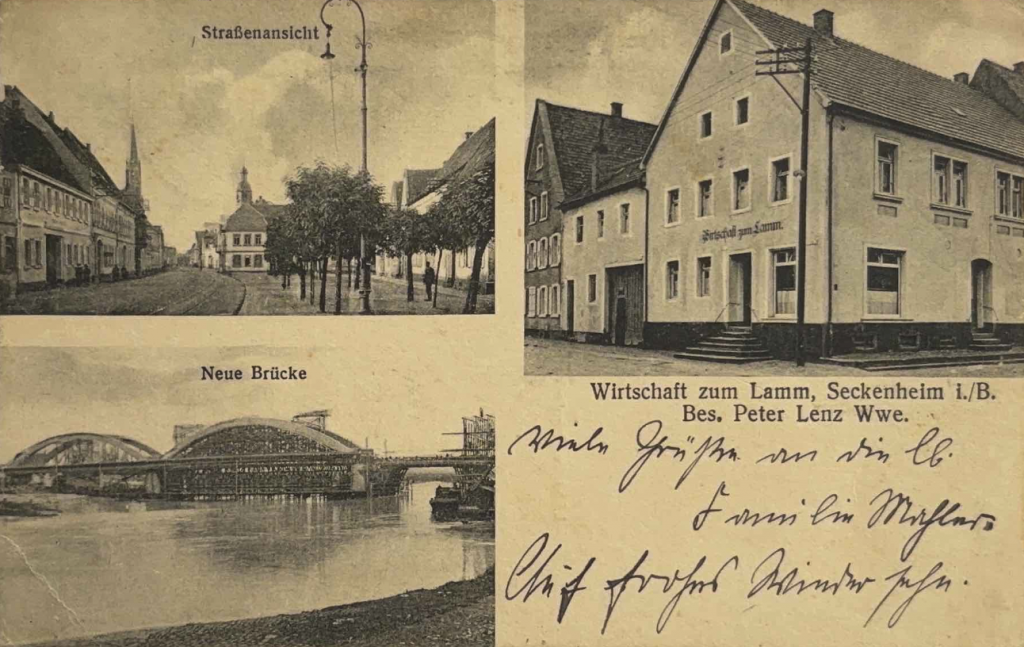 Straßenansicht
Neue Brücke
Wirtschaft zum Lamm.
Wirtschaft zum Lamm, Seckenheim i./B.
Bes. Peter Lenz Wwe.
Viele Grüße an die lb.
Familie Mahler.
Auf frohes Wiedersehn.